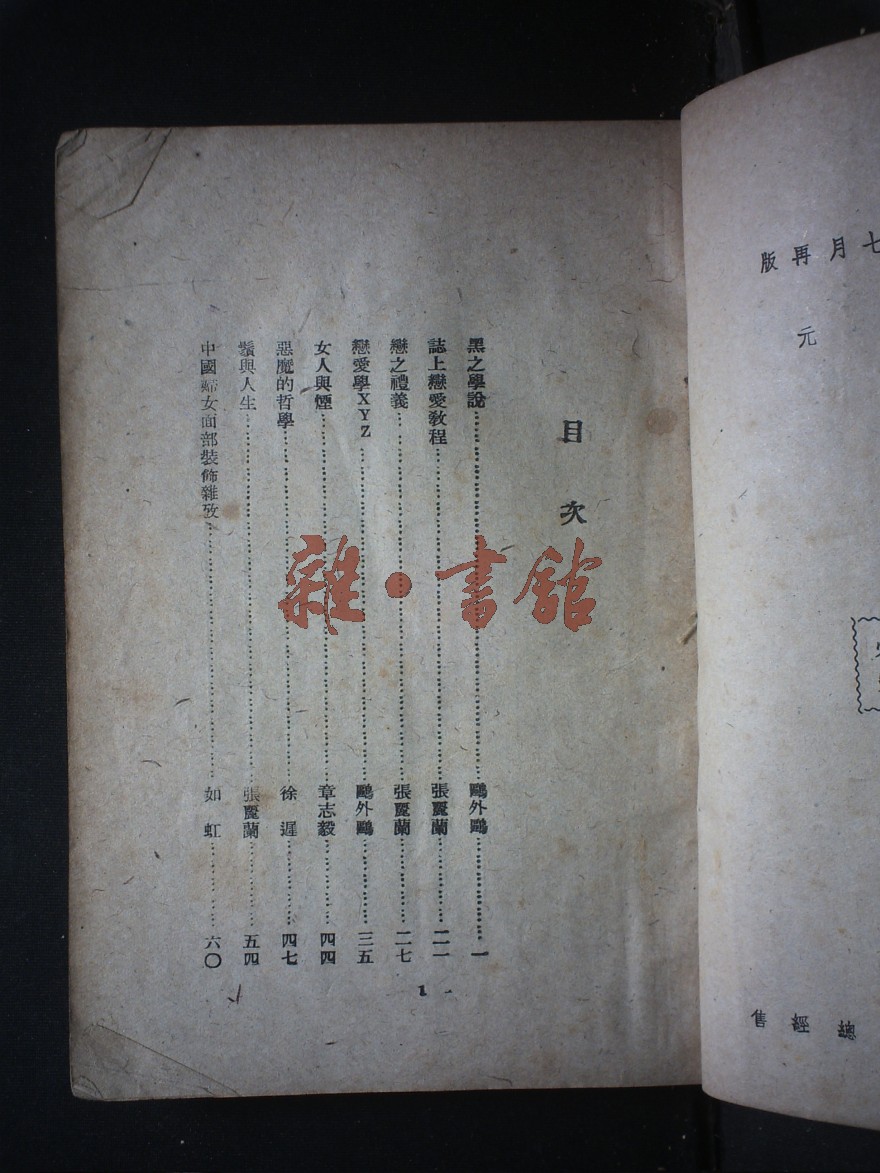 七月再版
元
總經售
目次
黑之學說……鷗外鷗……一
誌上戀愛敎程……張麗蘭……二一
戀之禮義……張麗蘭……二七
戀愛學XYZ……鷗外鷗……三五
女人與煙……章志毅……四四
惡魔的哲學……徐遲……四七
鬚與人生……張麗蘭……五四
中國婦女面部裝飾雜攷……如虹……六〇
1
雜·書館